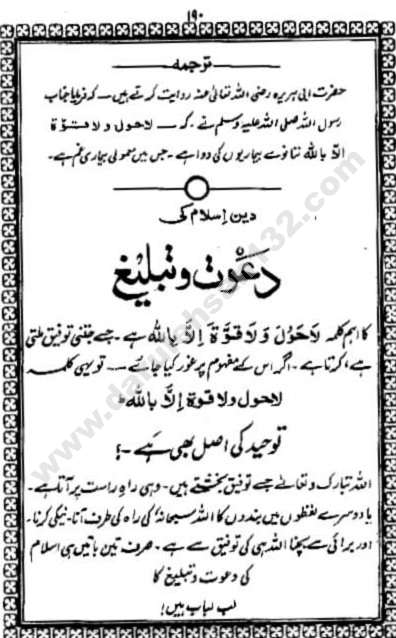 ۱۹۰
ترجمہ
حضرت ابی ہریرہ رضی اللہ تعالیٰ عنہ روایت کرتے ہیں ۔ کہ فرمایا جناب
رسول اللہ صلی اللہ علیہ وسلم نے ۔ کہ ۔ لاحول ولا قوۃ
الا باللہ ننانوے بیماریوں کی دوا ہے ۔ جس میں معمولی بیماری غم ہے ۔
دین اسلام کی
دعوت و تبلیغ
کا اہم کلمہ لَاحَوْلَ وَلَا قُوَّةَ اِلَّا بِاللّٰه ہے ۔ جسے جتنی توفیق ملتی
ہے ، کرتا ہے ۔ اگر اس کے مفہوم پر غور کیا جائے ۔ تو یہی کلمہ
لاحول ولا قوة اِلَّا بِاللّٰه
توحید کی اصل بھی ہے ۔ !
اللہ تبارک و تعالیٰ جسے توفیق بخشتے ہیں ۔ وہی راہِ راست پر آتا ہے ۔
یا دوسرے لفظوں میں بندوں کا اللہ سبحانہٗ کی راہ کی طرف آنا ۔ نیکی کرنا ۔
اور برائی سے بچنا اللہ ہی کی توفیق سے ہے ۔ صرف تین باتیں ہی اسلام
کی دعوت و تبلیغ کا
لب لباب ہیں !
www.darulehsan132.com